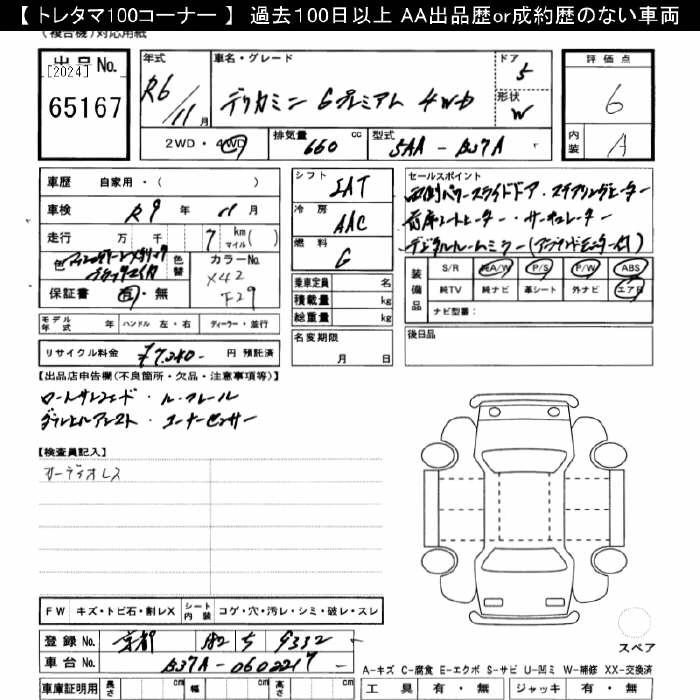 【 トレタマ100コーナー 】 過去100日以上 AA出品歴or成約歴のない車両
(複合機)対応用紙
出品No.
[2024]
65167
年式
R6/11月
車名・グレード
デリカミニ Gプレミアム 4WD
ドア
5
形状
W
評価点
6
内装
A
2WD・4WD
排気量
660 cc
型式
5AA - B37A
車歴 自家用・( )
車検 R9 年 11 月
走行 万 千 7 km マイル ( )
色
色替
カラーNo.
X42
F29
保証書 有・無
シフト
IAT
冷房
AAC
燃料
G
乗車定員 名
積載量 kg
総重量 kg
セールスポイント
両側パワースライドドア・ステアリングヒーター
前席シートヒーター・サーキュレーター
デジタルルームミラー
装備品
S/R
純A/W
P/S
P/W
ABS
純TV
純ナビ
革シート
外ナビ
エアB
ナビ型番:
モデル年式 年
ハンドル 左・右
ディーラー・並行
名変期限
月 日
後日品
リサイクル料金 ¥7,280- 円 預託済
【出品店申告欄(不良箇所・欠品・注意事項等)】
ルーフレール
コーナーセンサー
【検査員記入】
オーディオレス
FW キズ・トビ石・割レX
シート内装 コゲ・穴・汚レ・シミ・破レ・スレ
登録No. 京都 582 ち 9332
車台No. B37A-0602217
車庫証明用 長さ cm 幅 cm 高さ cm
スペア
A-キズ C-腐食 E-エクボ S-サビ U-凹ミ W-補修 XX-交換済
工具 有・無 ジャッキ 有・無